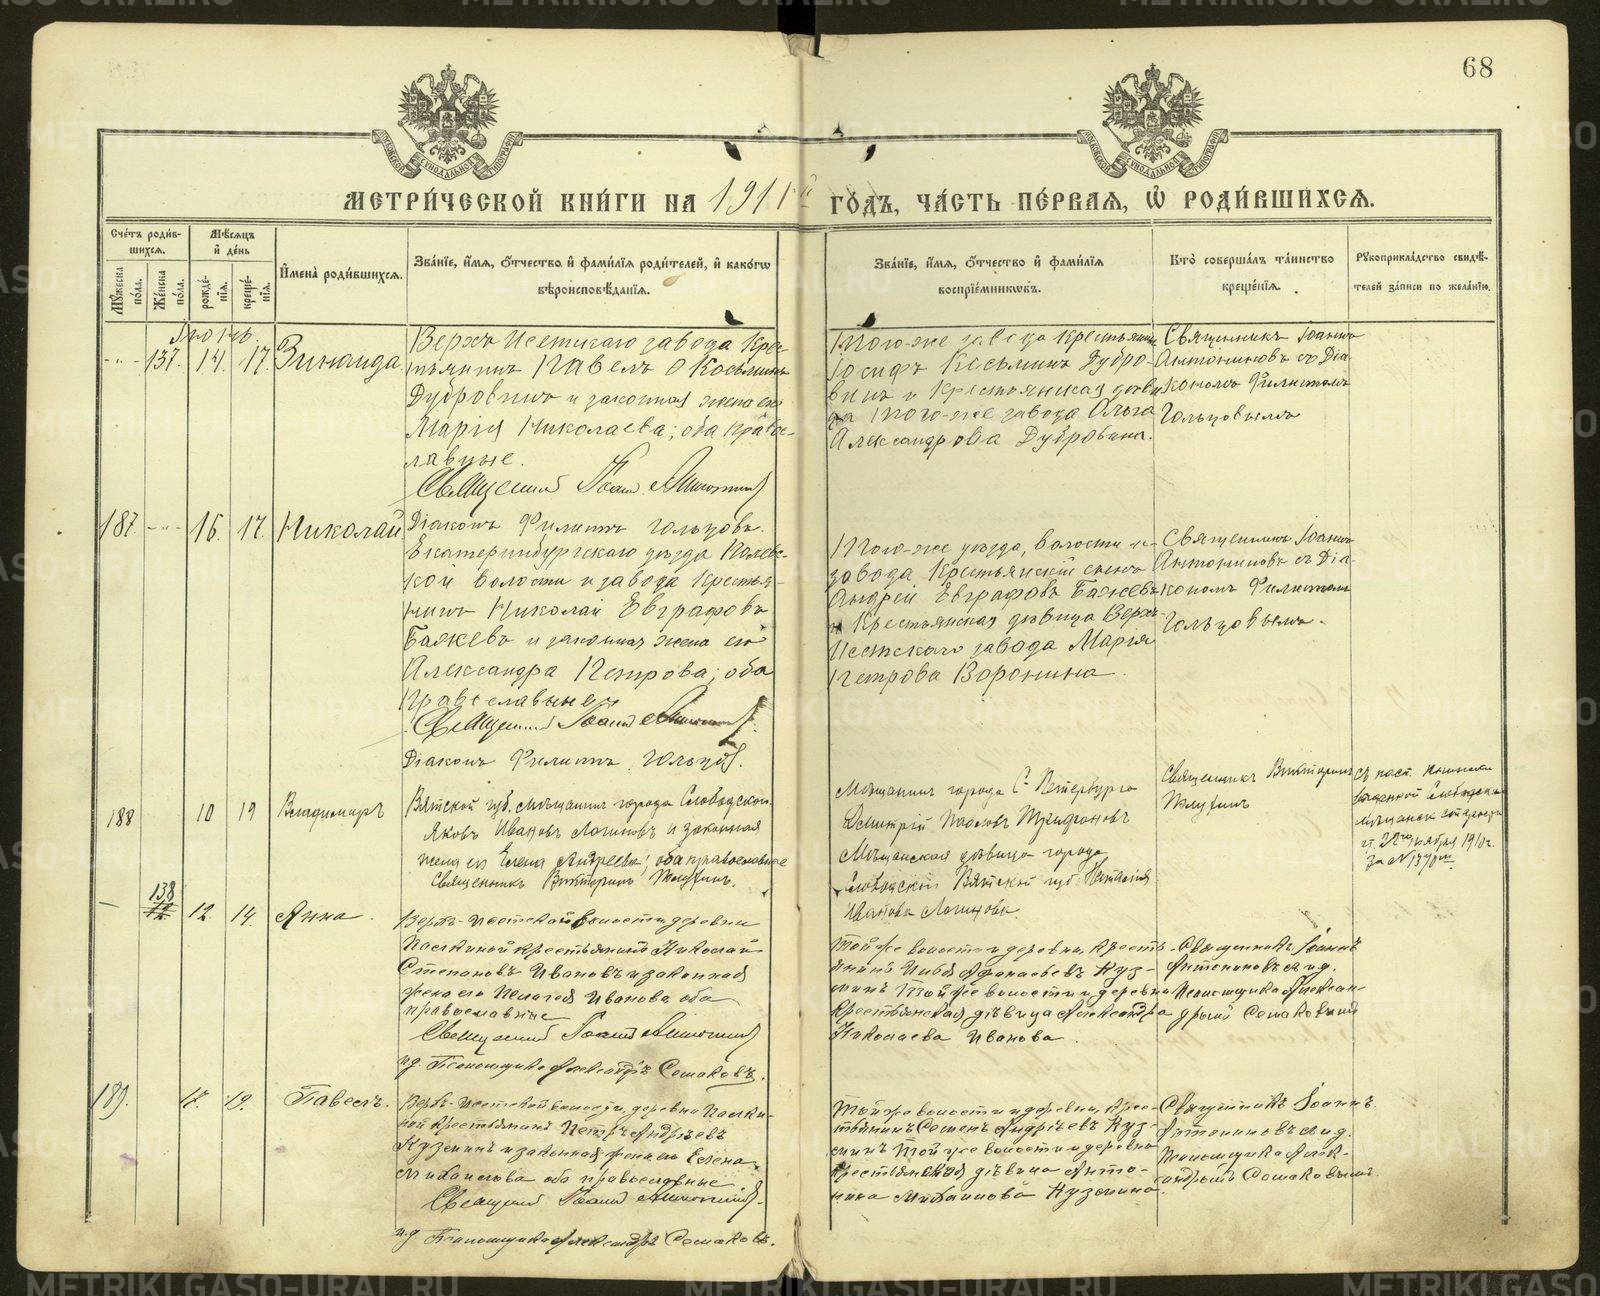 68
МЕТРИ́ЧЕСКОЙ КНИ́ГИ НА 1911й ГО́ДЪ, ЧА́СТЬ ПЕ́РВАЯ, Ѡ РОДИ́ВШИХСЯ.
Сче́тъ роди́в-
шихся.
Мѣ́сяцъ
и҆ де́нь
Мꙋ́жеска
по́ла.
Же́нска
по́ла.
рожде́-
нїя.
креще́-
нїя.
И҆мена̀ роди́вшихся.
Зва́нїе, и҆́мя, ѻ҆́тчество и҆ фами́лїя роди́телей, и҆ како́гѡ
вѣроисповѣ́данїя.
Зва́нїе, и҆́мя, ѻ҆́тчество и҆ фами́лїя
воспрїе́мникѡвъ.
Кто̀ соверша́лъ та́инство
креще́нїя.
Рꙋкоприкла́дство свидѣ́-
телей за́писи по жела́нїю.
Іюнь.
137. 14. 17. Зинаида
Верхъ Исетскаго завода Крес-
тьянинъ Павелъ Косьминъ
Дубровинъ и законная жена его
Марія Николаева; оба Право-
славные.
Священникъ Іоаннъ Антониновъ
Діаконъ Филиппъ Гольцовъ.
Того-же завода крестьянинъ
Іосифъ Косьминъ Дубро-
винъ и Крестьянская дѣви-
ца того-же завода Ольга
Александрова Дубровина.
Священникъ Іоаннъ
Антониновъ съ Діа-
кономъ Филиппомъ
Гольцовымъ
187. 16. 17. Николай
Екатеринбургскаго уѣзда Полевс-
кой волости и завода Кресть-
нинъ Николай Евграфовъ
Бажевъ и законная жена его
Александра Петрова; оба
Православные
Священникъ Іоаннъ Антониновъ
Діаконъ Филиппъ Гольцовъ.
Того-же уѣзда, волости и
завода Крестьянскій сынъ
Андрей Евграфовъ Бажевъ
и Крестьянская дѣвица Верхъ-
Исетскаго завода Марія
Петрова Воронина.
Священникъ Іоаннъ
Антониновъ съ Діа-
кономъ Филиппомъ
Гольцовымъ.
188 10 19 Владимиръ
Вятской губ. мѣщанинъ города Слободского
Яковъ Ивановъ Логиновъ и законная
жена его Елена Андреева; оба православные
Священникъ Викторинъ
Мѣщанинъ города С-Петербурга
Димитрій Павловъ Трифановъ
Мѣщанская дѣвица города
Слободского Вятской губ. Наталія
Иванова Логинова.
Священникъ Викторинъ
138 12. 14. Анна.
Верхъ-Исетской волости деревни
Палкиной крестьянинъ Николай
Степановъ Ивановъ и законная
жена его Пелагея Иванова оба
православные
Священникъ Іоаннъ Антониновъ
и.д. Псаломщика Александръ Сомаковъ.
Той же волости и деревни, кресть-
янинъ Афанасьевъ Куз-
минъ Той же волости и деревни
Крестьянская дѣвица Александра
Николаева Иванова.
Священникъ Іоаннъ
Антониновъ и.д.
Псаломщика Алексан-
дромъ Сомаковымъ
189. 17. 19. Павелъ.
Верхъ-Исетской волости, деревни Палки-
ной крестьянинъ Петръ Андреевъ
Кузминъ и законная жена его Елена
Михаилова оба православные
Священникъ Іоаннъ Антониновъ
и.д Псаломщика Александръ Сомаковъ.
Той же волости и деревни, крес-
тьянинъ Семенъ Андреевъ Куз-
минъ Той же волости и деревни
Крестьянская дѣвица Анто-
нина Михаилова Кузмина.
Священникъ Іоаннъ
Антониновъ и.д.
Псаломщика Алек-
сандромъ Сомаковымъ
METRIKI.GASO-URAL.RU